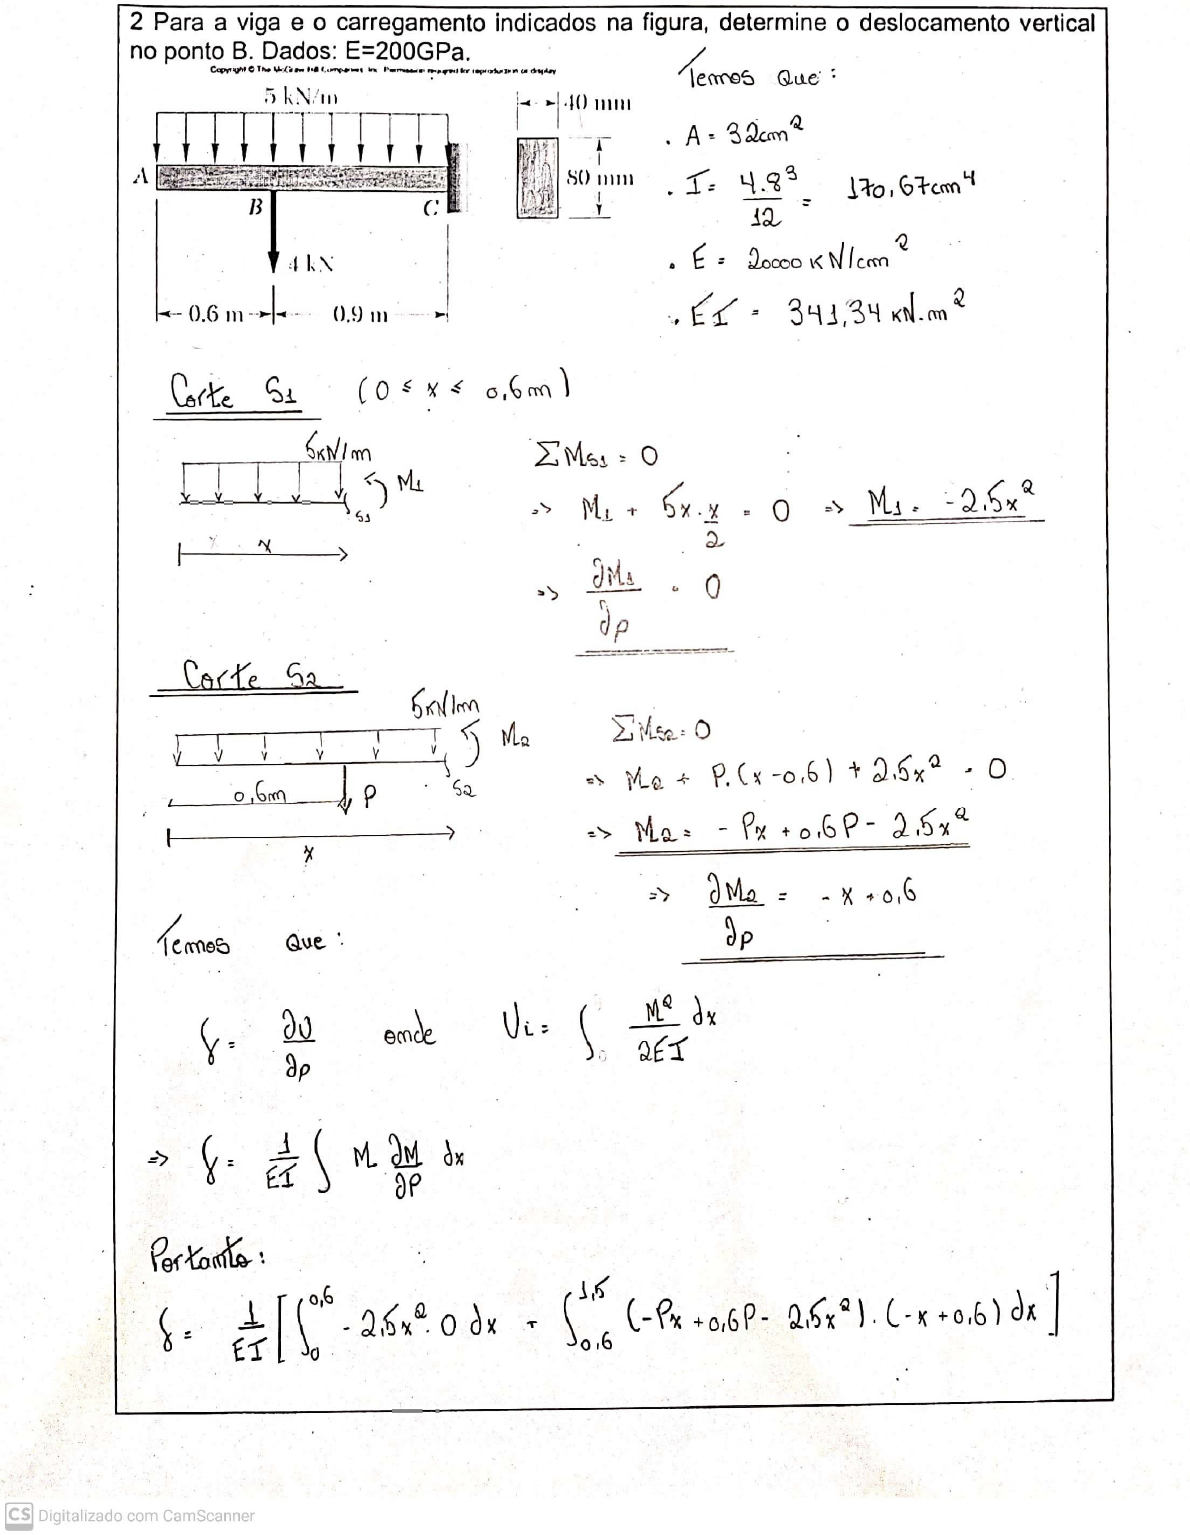 2 Para a viga e o carregamento indicados na figura, determine o deslocamento vertical
no ponto B. Dados: E=200GPa.
Copyright © The McGraw-Hill Companies, Inc. Permission required for reproduction or display
Temos Que :
5 kN/m
40 mm
. A = 32cm²
A
80 mm
. I = 4.8³/12 = 170,67cm⁴
B
C
4 kN
. E = 20000 KN/cm²
0.6 m
0.9 m
. EI = 341,34 KN.m²
Corte S1 (0 ≤ x ≤ 0,6m)
5KN/m
M1
S1
x
ΣMS1 = 0
=> M1 + 5x.x/2 = 0 => M1 = -2,5x²
=> ∂M1/∂P = 0
Corte S2
5KN/m
M2
S2
0,6m
P
x
ΣMS2 = 0
=> M2 + P.(x-0,6) + 2,5x² = 0
=> M2 = - Px + 0,6P - 2,5x²
=> ∂M2/∂P = - x + 0,6
Temos Que :
δ = ∂U/∂P onde Ui = ∫ M²/2EI dx
=> δ = 1/EI ∫ M ∂M/∂P dx
Portanto :
δ = 1/EI [∫₀^0,6 - 2,5x². 0 dx + ∫_0,6^1,5 (-Px + 0,6P - 2,5x²). (-x + 0,6) dx]
CS Digitalizado com CamScanner